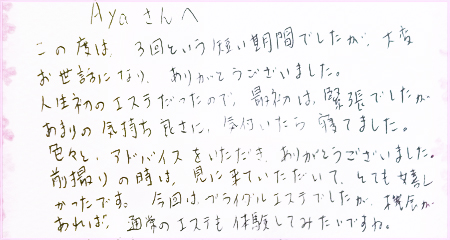 Ayaさんへ
この度は、3回という短い期間でしたが、大変
お世話になり、ありがとうございました。
人生初のエステだったので、最初は、緊張でしたが
あまりの気持ち良さに、気付いたら寝てました。
色々と、アドバイスをいただき、ありがとうございました。
前撮りの時は、見に来ていただいて、とても嬉し
かったです。今回はブライダルエステでしたが、機会が
あれば、通常のエステも体験してみたいですね。